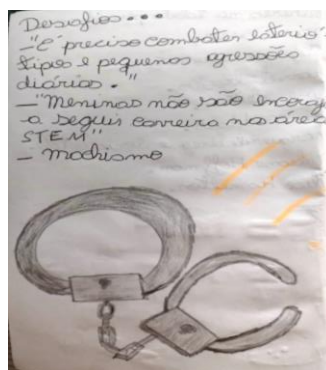 Desafios...
- "É preciso combater esterió-
tipos e pequenas agressões
diárias."
- "Meninas não são encoraj
a seguir carreira na área
STEM"
- Machismo